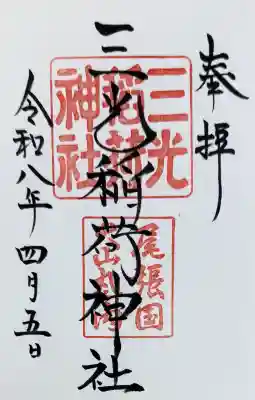 奉拝
三光稲荷神社
令和八年四月五日
三光
稲荷
神社
尾張国
犬山城内